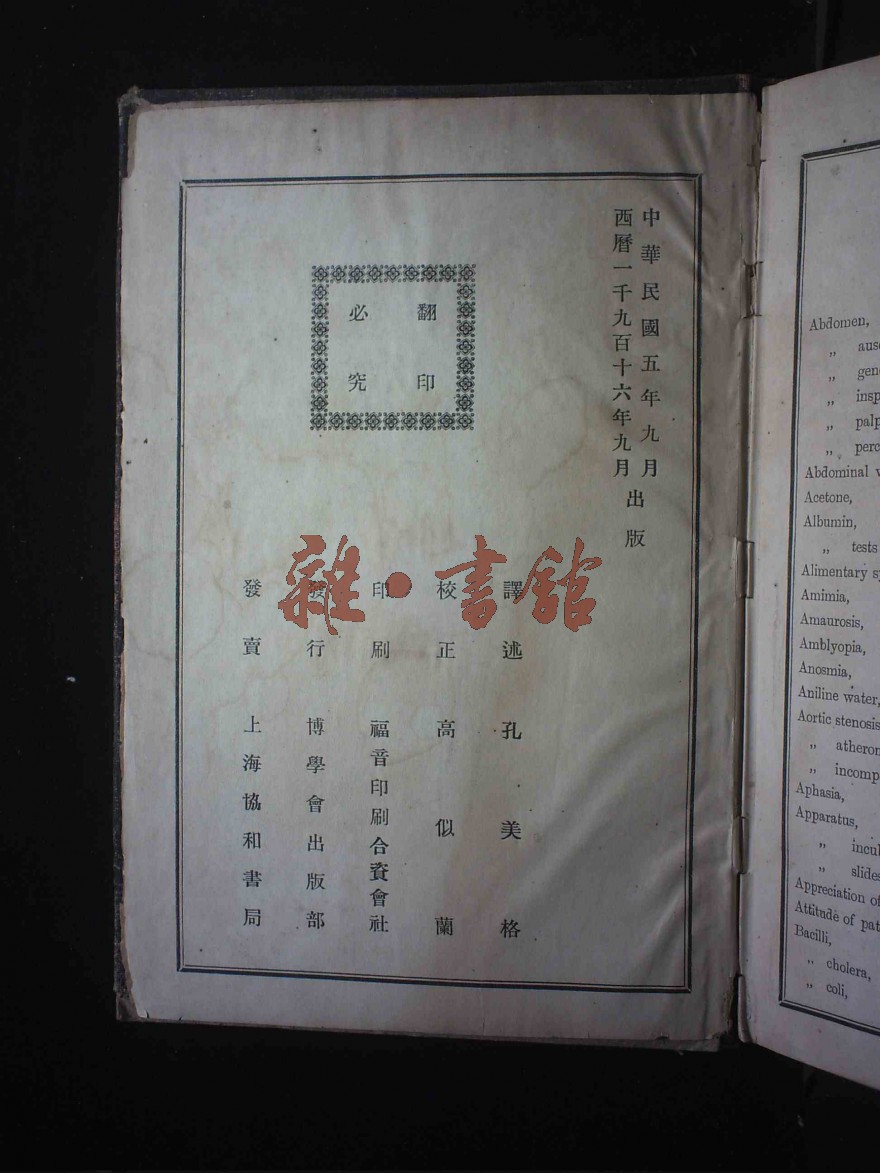 中華民國五年九月
西曆一千九百十六年九月
出版
翻印
必究
譯述 孔美格
校正 高似蘭
印刷 福音印刷合資會社
發行 博學會出版部
發賣 上海協和書局
雜·書館
Abdomen,
„ aus
„ gen
„ insp
„ palp
„ perc
Abdominal
Acetone,
Albumin,
„ tests
Alimentary
Amimia,
Amaurosis,
Amblyopia,
Anosmia,
Aniline water,
Aortic stenosis
„ atherom
„ incomp
Aphasia,
Apparatus,
„ incu
„ slides
Appreciation of
Attitude of pat
Bacilli,
„ cholera,
„ coli,